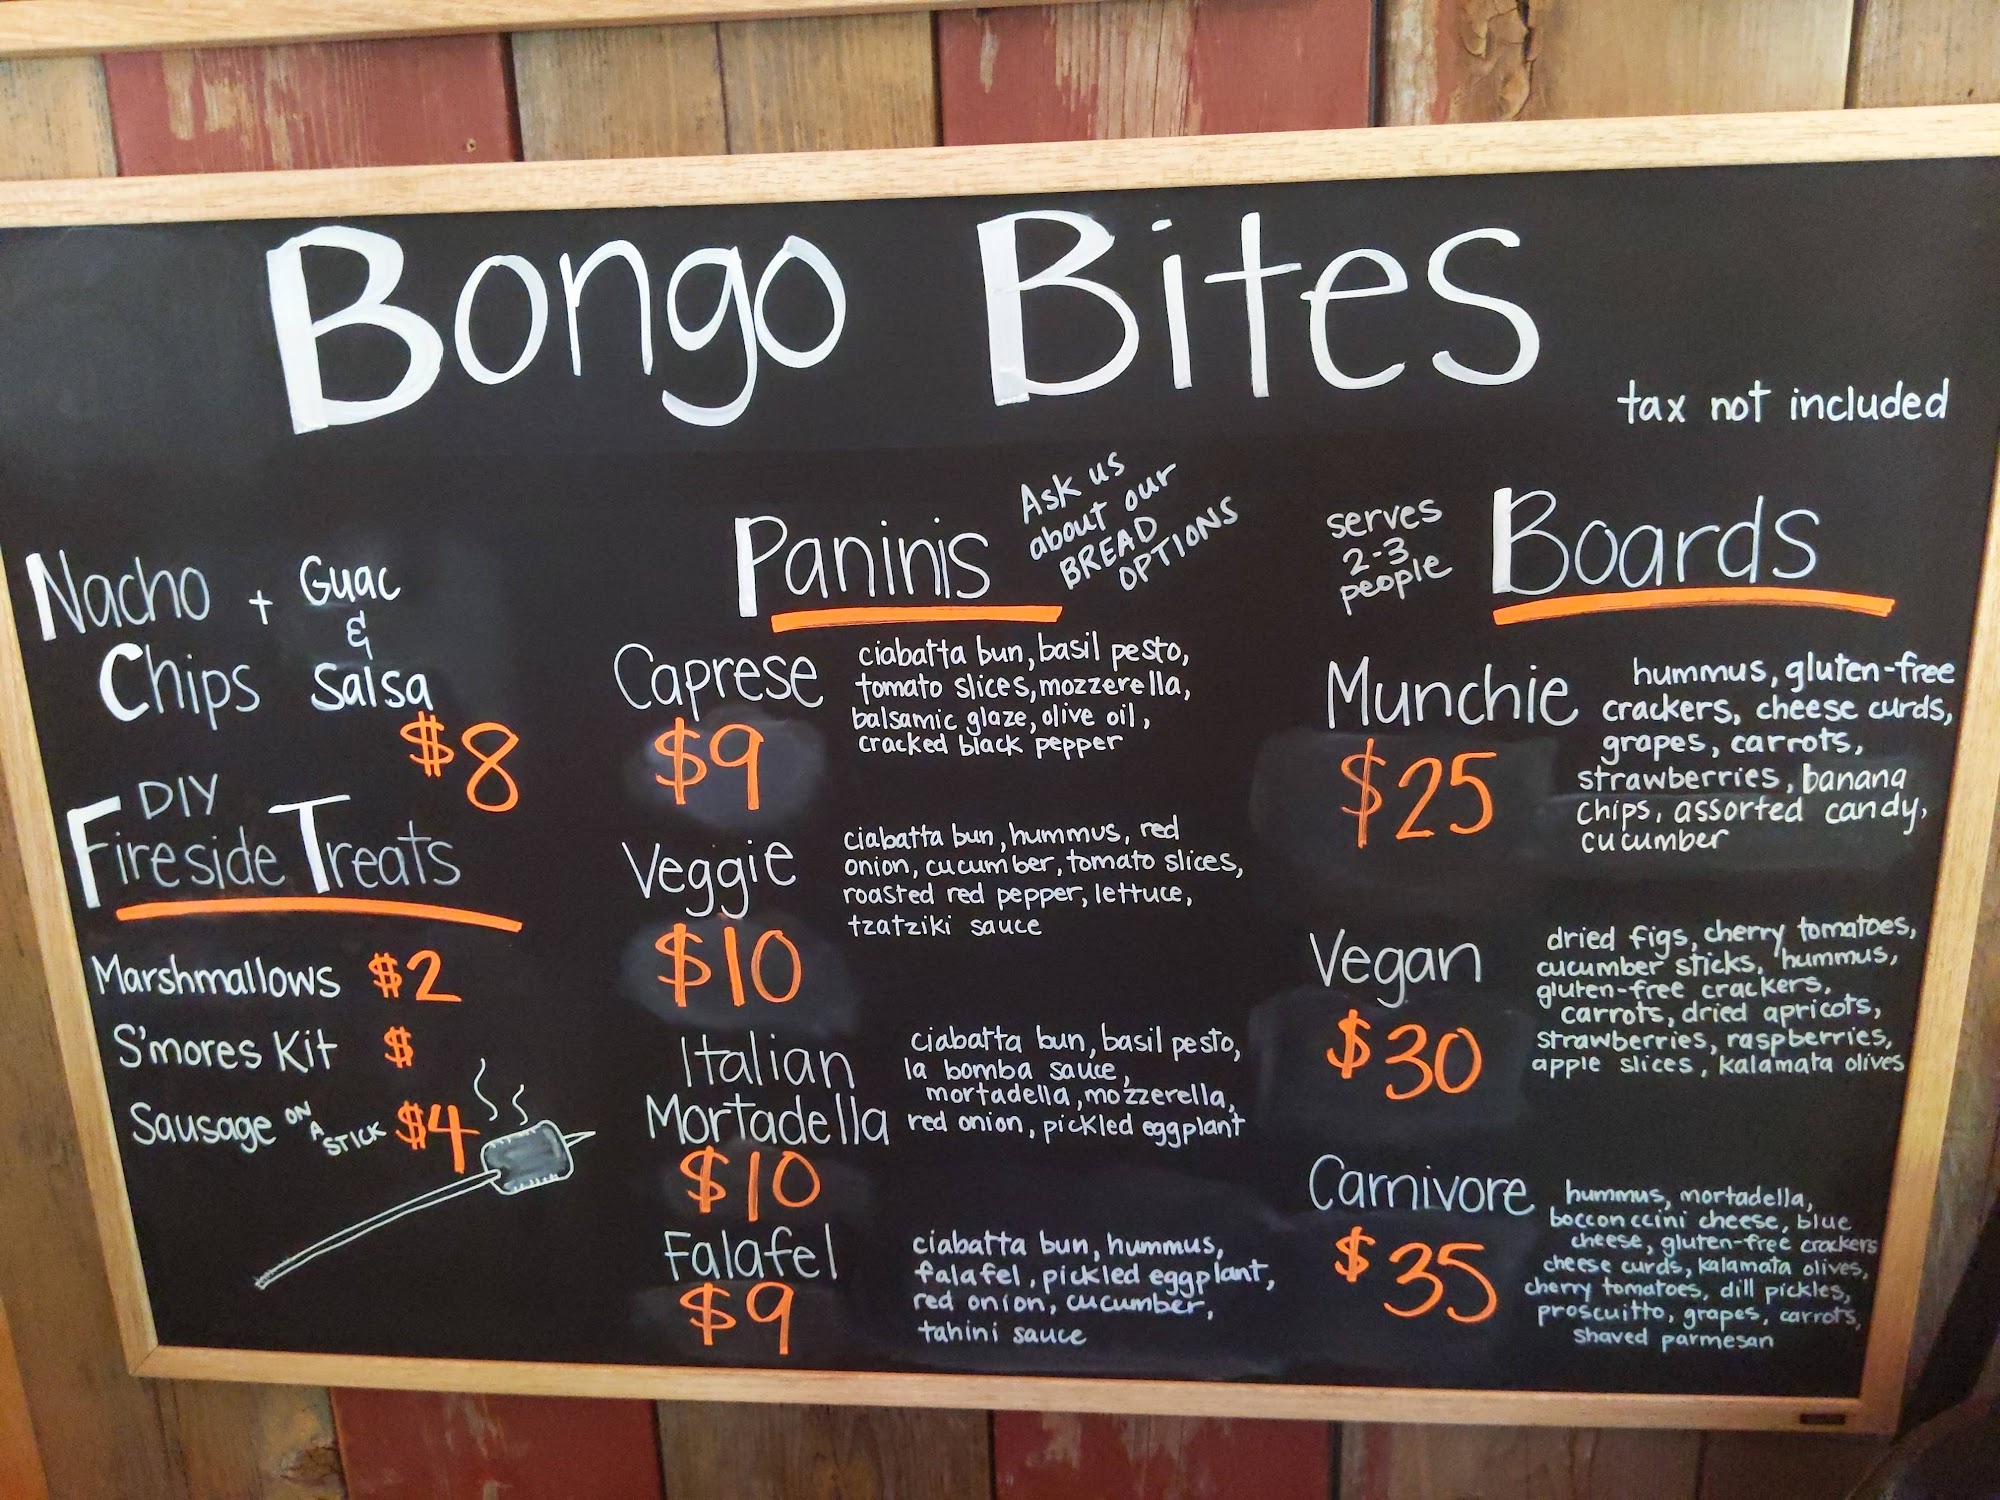 Bongo Bites
tax not included
Nacho + Guac
&
Chips Salsa
$8
DIY
Fireside Treats
Marshmallows $2
S'mores Kit $
Sausage ON A STICK $4
Paninis
Ask us
about our
BREAD
OPTIONS
Caprese
$9
ciabatta bun, basil pesto,
tomato slices, mozzerella,
balsamic glaze, olive oil,
cracked black pepper
Veggie
$10
ciabatta bun, hummus, red
onion, cucumber, tomato slices,
roasted red pepper, lettuce,
tzatziki sauce
Italian
Mortadella
$10
ciabatta bun, basil pesto,
la bomba sauce,
mortadella, mozzerella,
red onion, pickled eggplant
Falafel
$9
ciabatta bun, hummus,
falafel, pickled eggplant,
red onion, cucumber,
tahini sauce
serves
2-3
people
Boards
Munchie
$25
hummus, gluten-free
crackers, cheese curds,
grapes, carrots,
strawberries, banana
chips, assorted candy,
cucumber
Vegan
$30
dried figs, cherry tomatoes,
cucumber sticks, hummus,
gluten-free crackers,
carrots, dried apricots,
strawberries, raspberries,
apple slices, kalamata olives
Carnivore
$35
hummus, mortadella,
bocconccini cheese, blue
cheese, gluten-free crackers
cheese curds, kalamata olives,
cherry tomatoes, dill pickles,
proscuitto, grapes, carrots,
shaved parmesan